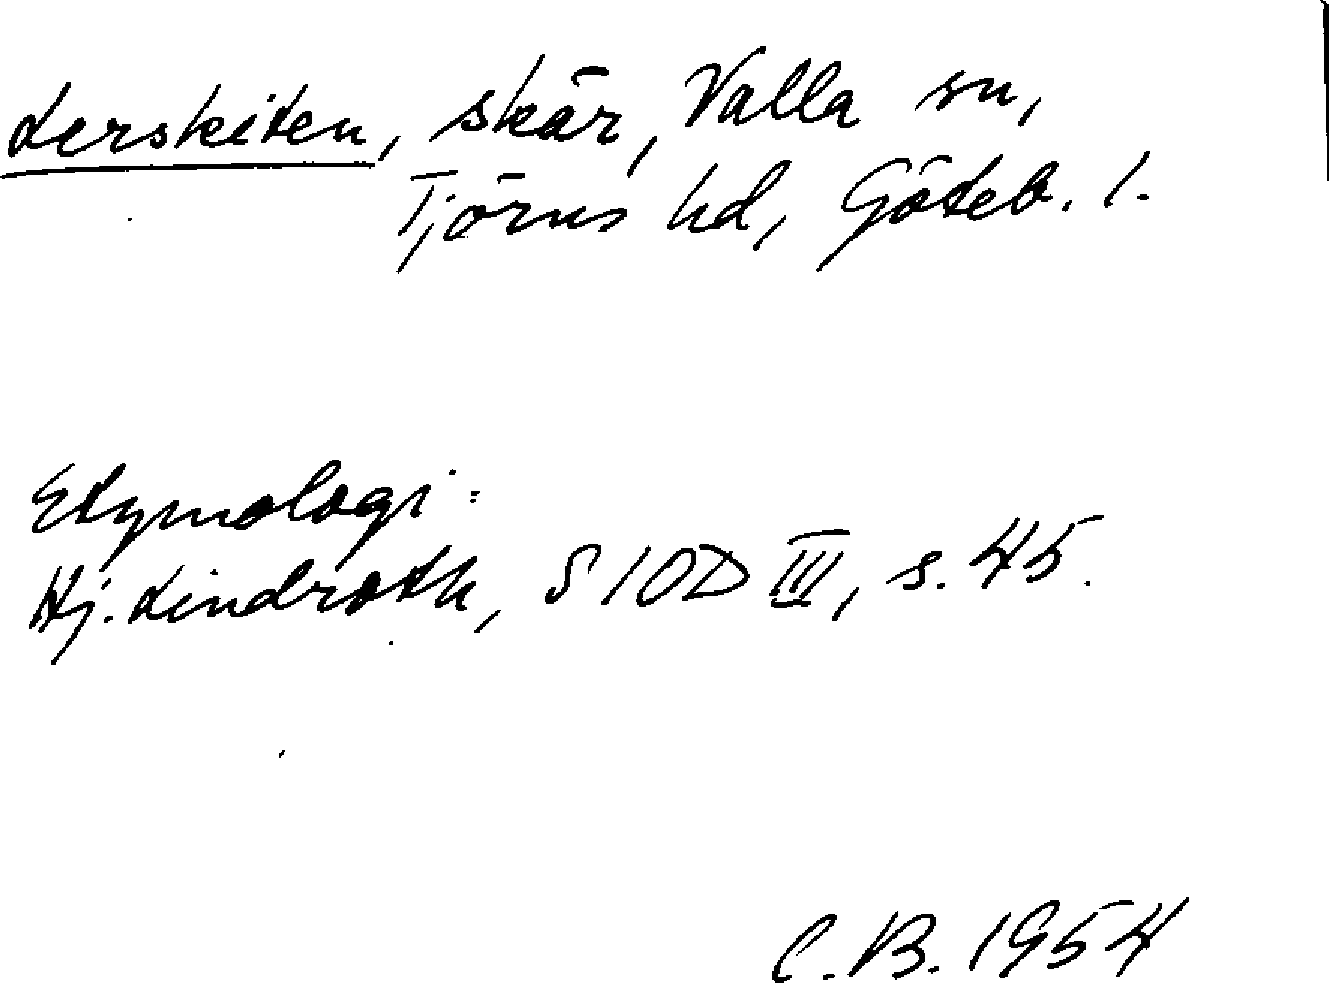 Lerskiten, skär, Valla sn,
Tjörns hd, Göteb. l.
Etymologi:
Hj. Lindroth, SIOD III, s. 45.
C.B. 1954